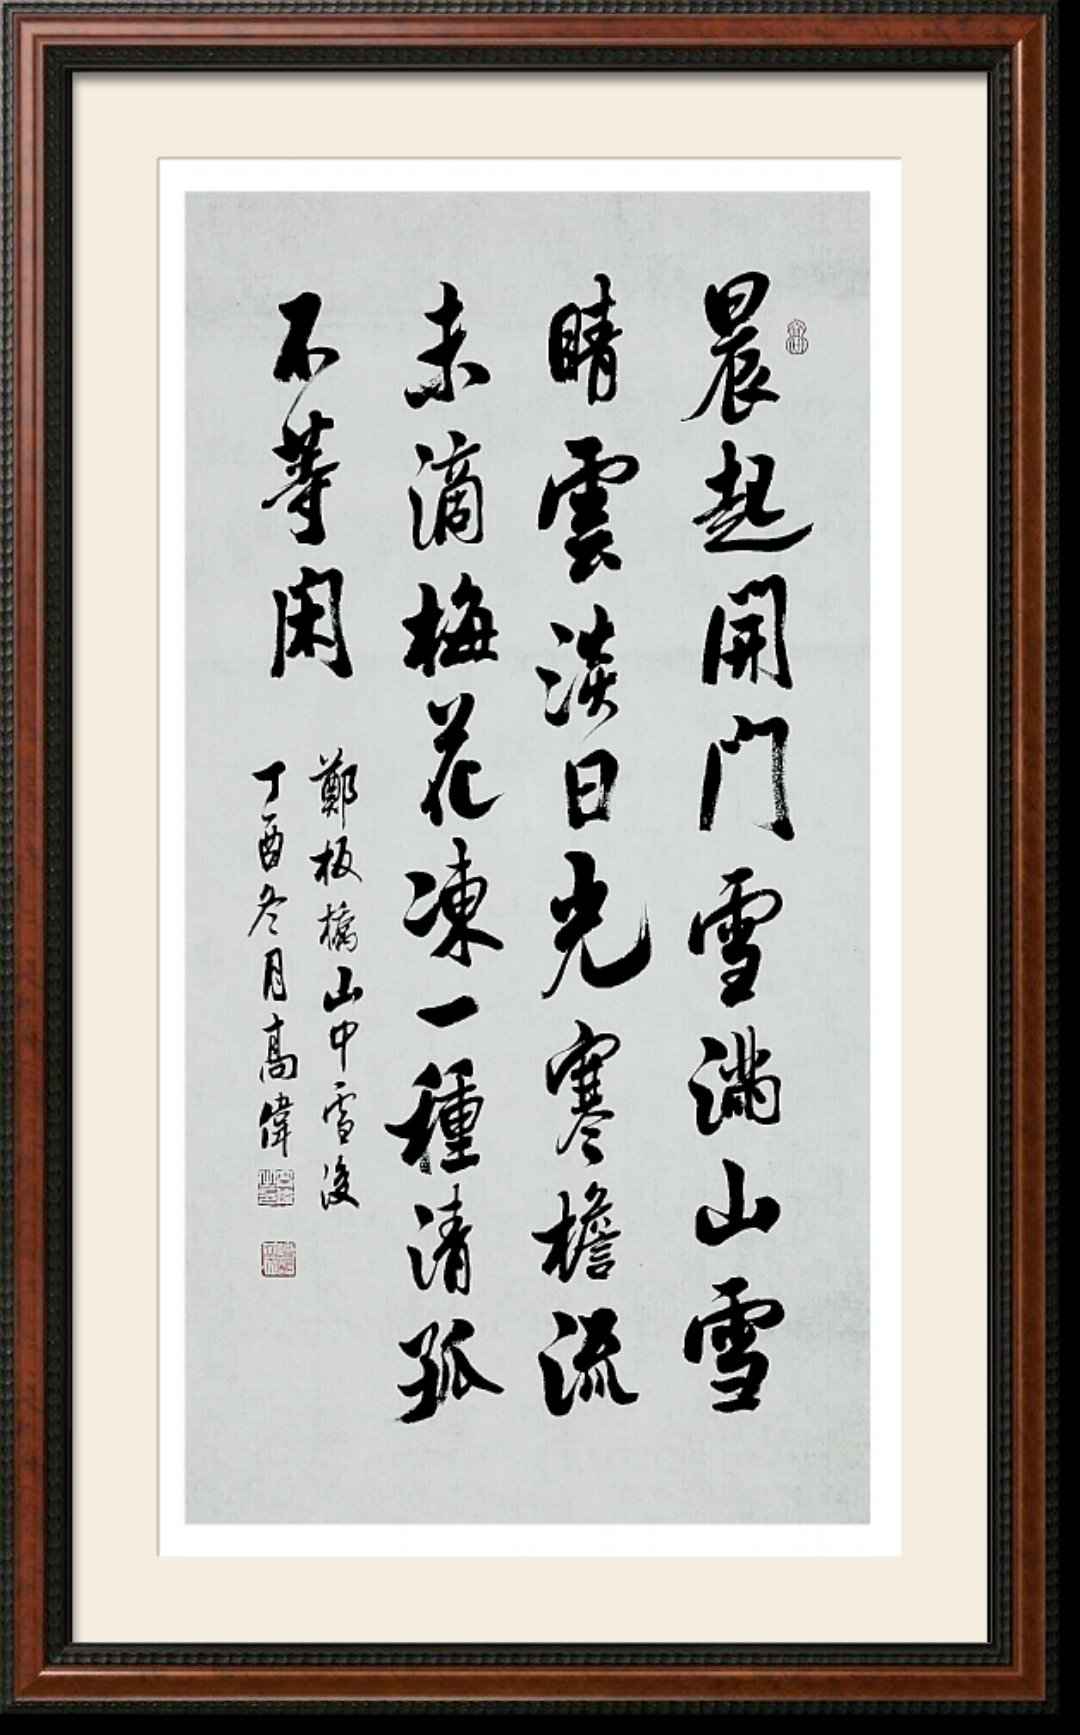 晨起開門雪滿山雪
晴雲淡日光寒檐流
未滴梅花凍一種清孤
不等閑
鄭板橋山中雪後
丁酉冬月高偉